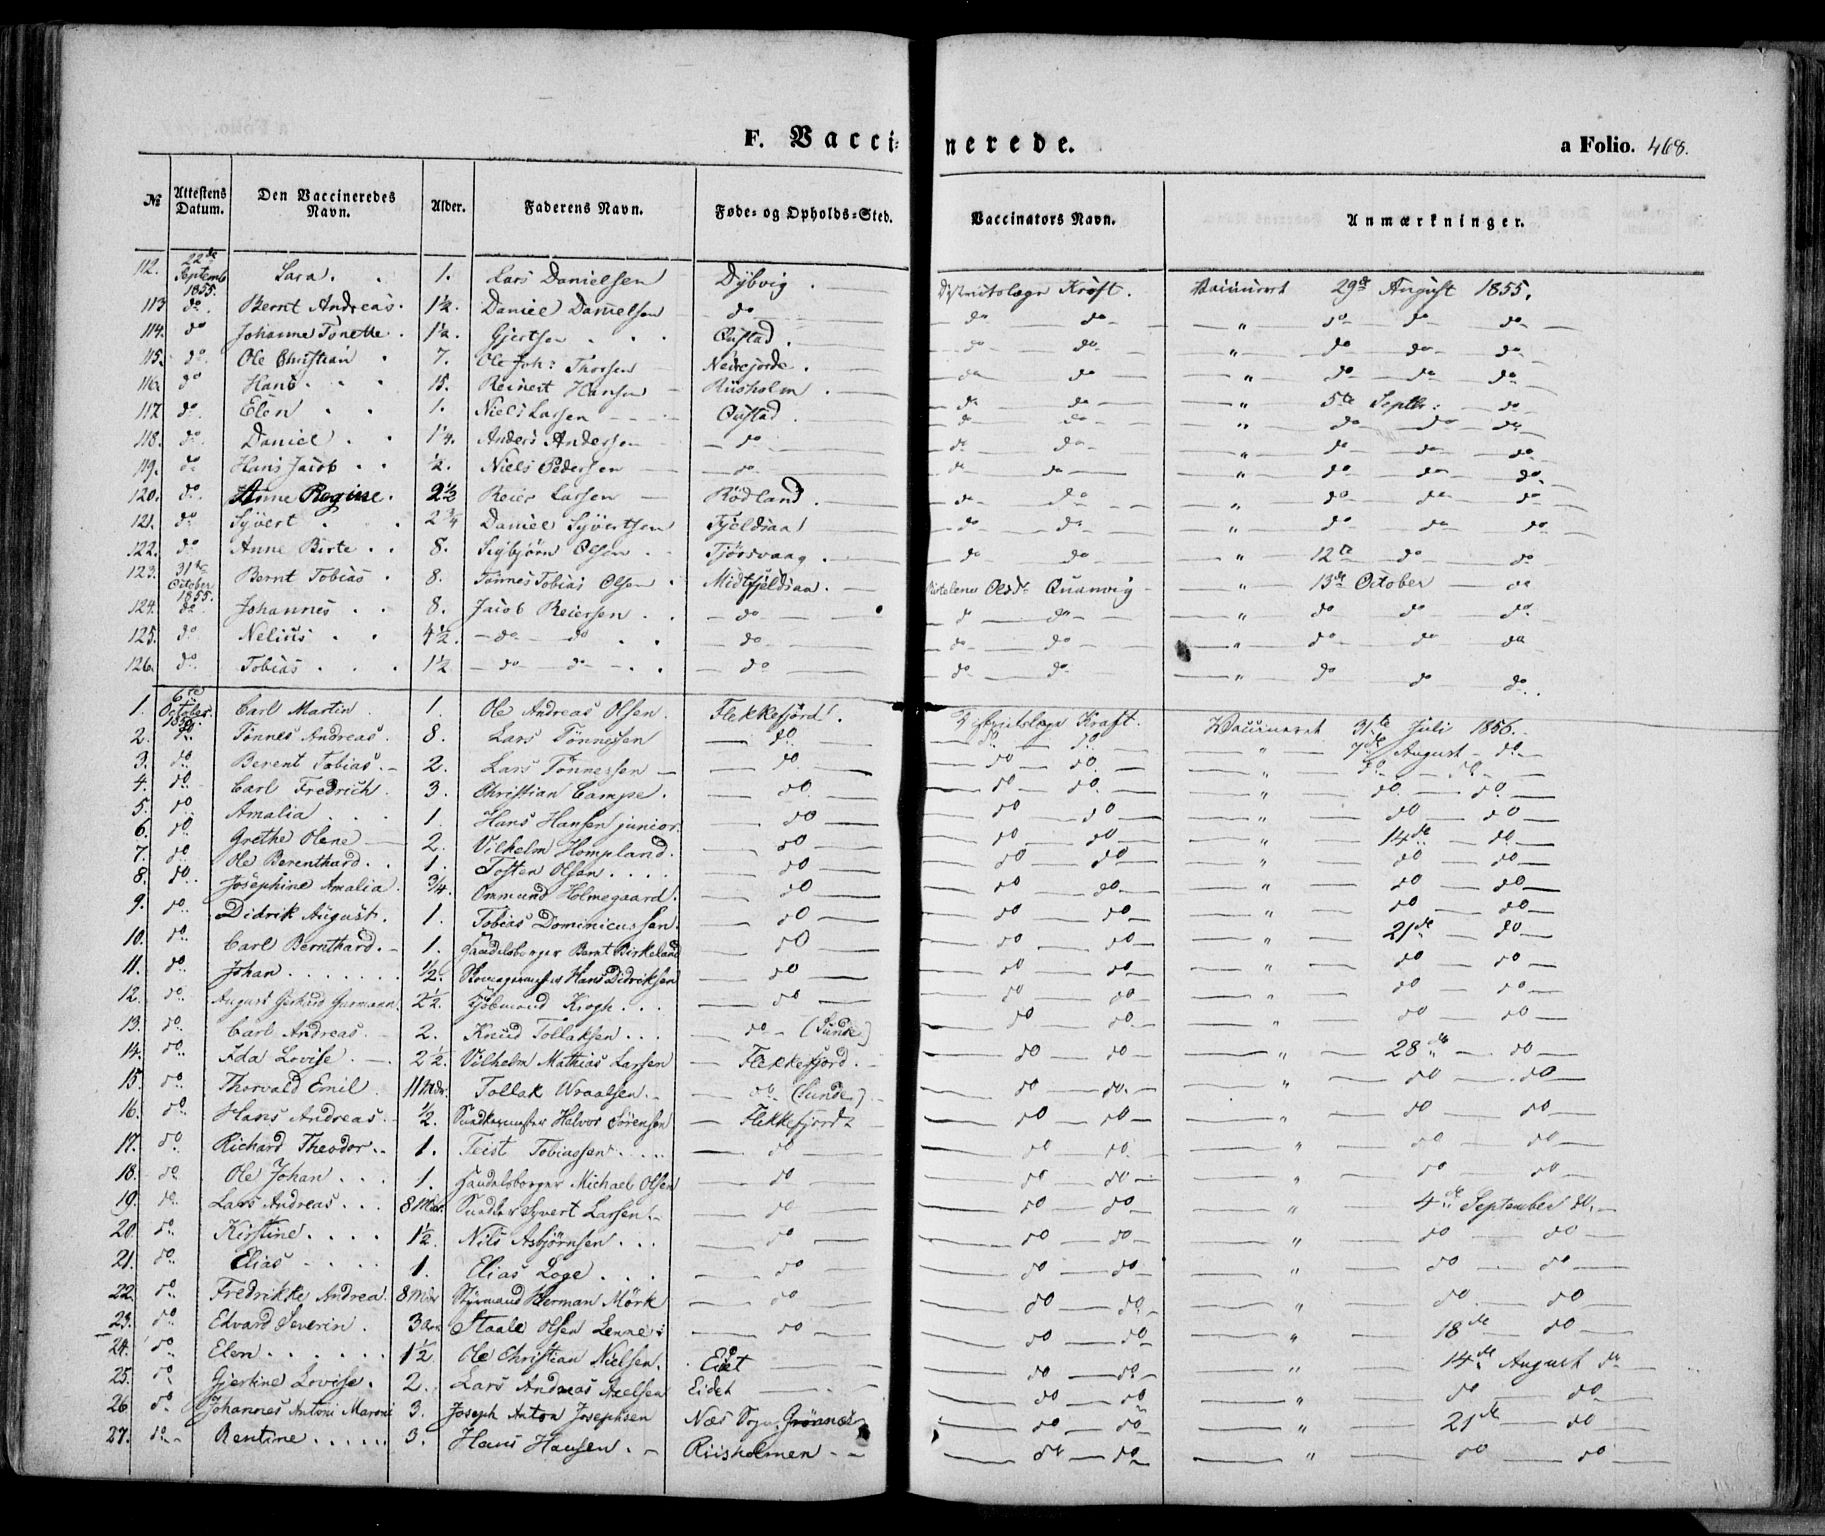 F. Vaccinerede. a Folio. 468.
№ Attestens Datum. Den Vaccineredes Navn. Alder. Faderens Navn. Føde- og Opholds-Sted. Vaccinators Navn. Anmærkninger.
112. 22de Septemb 1855. Sara. 1. Lars Danielsen Dybvig. Districtslæge Kraft. Vaccineret 29de August 1855.
113 do. Bernt Andreas. 1½. Daniel Danielsen do do do " do do do
114. do Johanne Tonette. 1½. Gjertsen Qustad. do do " do do do
115. do. Ole Christian 7. Ole Joh: Thorsen Nedrejorde. do do " do do do
116. do Hans. 15. Reinert Hansen Riisholm. do do " do do do
117. do Elen 1. Niels Larsen Qustad. do do " 5te Septb: do
118. do. Daniel. 1¼. Anders Andersen do do do " do do do
119. do Hans Jacob. ½. Niels Pedersen do do do " do do do
120. do. Anne Regine. 2½ Reier Larsen Rødland. do do " do do do
121. do Syvert. 2¾ Daniel Syvertsen Fjeldsaa do do " do do do
122. do Anne Birte. 8. Sigbjørn Olsen Tjørsvaag. do do " 12te do do
123. 31te October 1855. Bernt Tobias. 8. Tønnes Tobias Olsen. Midtfjeldsaa. Qvanvig " 13de October do
124. do Johannes. 8. Jacob Reiersen. do do do " do do do
125. do. Nelius. 4½. do do do do do " do do do
126. do. Tobias. 1½ do do do do do " do do do
1. 6te October 1856. Carl Martin. 1. Ole Andreas Olsen. Flekkefjord. Districtslæge Kraft. Vaccineret 31te Juli 1856.
2. do. Tønnes Andreas. 8. Lars Tønnesen do. do. do. " 7de August do.
3. do Berent Tobias. 2. Lars Tønnessen do. do do. " do. do.
4. do Carl Fredrich. 3. Christian Campe. do do do. " do. do.
5. do Amalia 1. Hans Hansen junior. do do do " do do
6. do. Grethe Olene 2. Vilhelm Hompland. do do do " 14de do.
7. do Ole Berenthard. 1. Tosten Olsen do do do " do do
8. do. Josephine Amalia. ¾. Ommund Holmegaard. do do do " do do
9. do. Didrik August. 1. Tobias Dominicussen. do do do " do do
10. do. Carl Bernthard. 1. Handelsborger Bernt Birkeland do do do " 21de do
11. do. Johan ½. Skomagermester Hans Didriksen do do do " do do
12. do. August Gerhard Gurmann. 2½. Kjøbmand Krogh do do do. " do do
13. do. Carl Andreas. 2. Knud Tollaksen do (Sunde) do do. " do do
14. do. Ida Lovise. 2½. Vilhelm Mathias Larsen Flekkefjord. do do " 28de do
15. do. Thorvald Emil. 11 Mdr. Tollak Wraalsen. do. (Sunde) do do. " do do
16. do. Hans Andreas. ½. Halvor Sørensen Flekkefjord do do " do do
17. do Richard Theodor. 1. Teist Tobiassen do do do. " do do
18. do. Ole Johan 1. Handelsborger Michael Olsen do do do " do do
19. do. Lars Andreas 8 Mdr. Syvert Larsen. do do do " 4de September do.
20. do. Kirstine 1½. Nils Asbjørnsen do do do " do do
21. do. Elias 1. Elias Loge do do do " do do
22. do. Fredrikke Andrea. 8 Mdr Styrmand Herman Mørk do do do. " do do
23. do. Edvard Severin. 3 Aar Staale Olsen do do do " 18de do
24. do. Elen 1½ Ole Christian Nielsen. Eidet do do. " 14de August do
25. do Gjertine Lovise. 2. Lars Andreas Axelsen Eidet do do " do do
26 do Johannes Antoni 3. Joseph Anton Josephsen Næs Sogn Grønnes do do " 21de do
27. do. Rentine 3. Hans Hansen. Riisholmen do do " do do